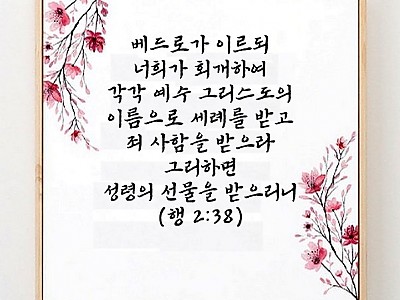 베드로가 이르되
너희가 회개하여
각각 예수 그리스도의
이름으로 세례를 받고
죄 사함을 받으라
그리하면
성령의 선물을 받으리니
(행 2:38)